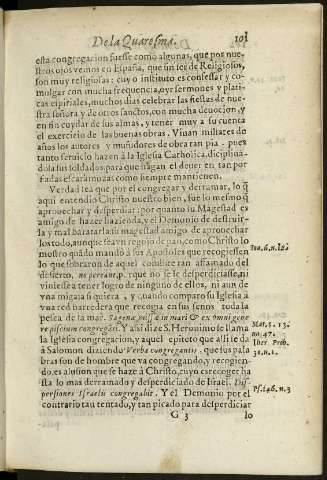 De la Quaresma. 101
esta congregacion fuesse como algunas, que por nue-
stros ojos vemos en España, que sin ser de Religiosos,
son muy religiosas; cuyo instituto es confessar y co-
mulgar con mucha frequencia, oyr sermones y plati-
cas espirituales, muchos dias celebrar las fiestas de nue-
stra señora y de otros sanctos, con mucha deuocion, y
en fin cuydar de sus almas, y tener muy a su cuenta
el exercicio de las buenas obras. Viuan millares de
años los autores y muñidores de obra tan pia. pues
tanto seruicio hazen à la Iglesia Catholica, diciplinã-
dola sus soldados, para que hagan el deuer en tan por
fiadas escaramuzas como siempre mantienen.
Verdad sea que por el congregar y derramar, lo q̃
aqui entendio Christo nuestro bien, fue lo mesmo q̃
aprouechar y desperdiciar: por quanto su Magestad es
amigo de hazer hazienda, y el Demonio de destruir-
la y malbaratarla: su magestad amigo de aprouechar
los todo, aunque sea vn regojo de pan, como Christo lo
mostro quãdo mandò à sus Apostoles que recogiessen
lo que sobraron de aquel combite tan afamado del
desierto, ne pereant. porque no se le desperdiciasse, ni
viniesse a tener logro de ninguno de ellos, ni aun de
vna migaja si quiera, y quando comparò su Iglesia à
vna red barredera que recogia en sus senos toda la
pesca de la mar. Sagenæ missæ in mari & ex omni gene
re piscium congreganti. Y assi dize S. Hieronimo se llama
la Iglesia congregacion, y aquel epiteto que assi se da
à Salomon diziendo Verba congregantis. que sus pala
bras son de hombre que va congregando, y recogien-
do, es alusion que se haze à Christo, cuyo es recoger ha
sta lo mas derramado y desperdiciado de Israel. Dis-
persiones Israelis congregabit. Y el Demonio por el
contrario tan tentado, y tan picado para desperdiciar
G 3 lo
Ioa. 6. n. 12.
Mat. s. 13.
nu. 47.
Prob.
30. n. 1.
Ps. 146. n. 3